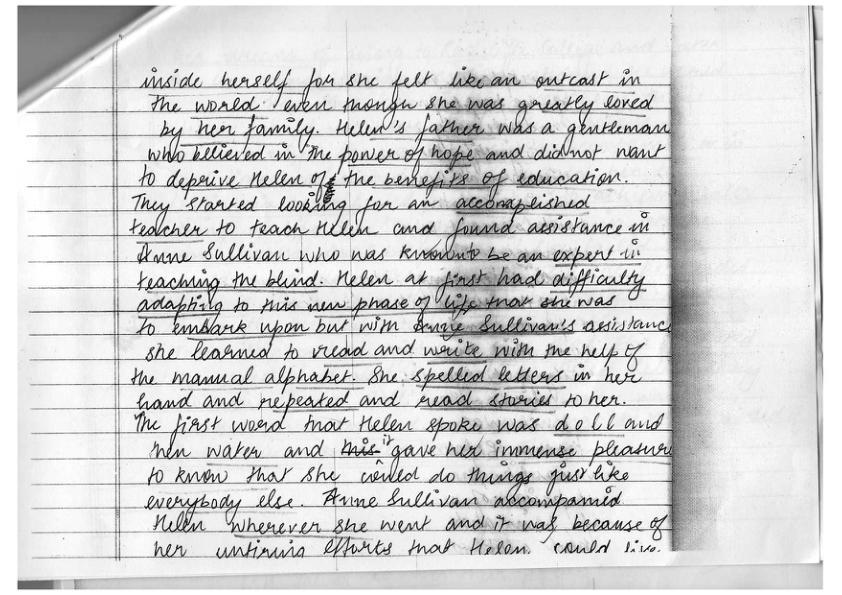 inside herself for she felt like an outcast in
the world even though she was greatly loved
by her family. Helen's father was a gentleman
who believed in the power of hope and did not want
to deprive Helen of the benefits of education.
They started looking for an accomplished
teacher to teach Helen and found assistance in
Anne Sullivan who was known to be an expert in
teaching the blind. Helen at first had difficulty
adapting to this new phase of life that she was
to embark upon but with Anne Sullivan's assistance
she learned to read and write with the help of
the manual alphabet. She spelled letters in her
hand and repeated and read stories to her.
The first word that Helen spoke was doll and
then water and this it gave her immense pleasure
to know that she could do things just like
everybody else. Anne Sullivan accompanied
Helen wherever she went and it was because of
her untiring efforts that Helen could live